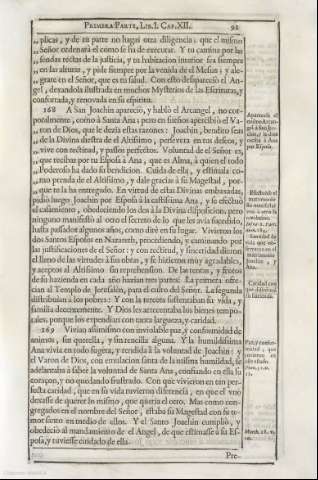 PRIMERA PARTE, LIB. I. CAP. XII. 91
plicas, y de tu parte no hagas otra diligencia: que el mismo
Señor ordenará el como se ha de executar. Y tu camina por las
sendas rectas de la justicia, y tu habitacion interior sea siempre
en las alturas, y pide siempre por la venida de el Mesias; y ale-
grate en el Señor, que es tu salud. Con esto desapareció el An-
gel, dexandola ilustrada en muchos Mysterios de las Escrituras, y
confortada, y renovada en su espiritu.
168 A San Joachin apareció, y habló el Arcangel, no cor-
poralmente, como à Santa Ana; pero en sueños apercibió el Va-
ron de Dios, que le dezia estas razones: Joachin, bendito seas
de la Divina diestra de el Altissimo, persevera en tus deseos, y
vive con rectitud, y passos perfectos. Voluntad de el Señor es,
que recibas por tu Esposa à Ana, que es Alma, à quien el todo
Poderoso ha dado su bendicion. Cuida de ella, y estimala co-
mo prenda de el Altissimo, y dale gracias à su Magestad, por-
que te la ha entregado. En virtud de estas Divinas embaxadas,
pidió luego Joachin por Esposa à la castissima Ana, y se efectuó
el casamiento, obedeciendo los dos à la Divina disposicion, pero
ninguno manifestó al otro el secreto de lo que les avia sucedido,
hasta passados algunos años, como diré en su lugar. Vivieron los
dos Santos Esposos en Nazareth, procediendo, y caminando por
las justificaciones de el Señor: y con rectitud, y sinceridad dieron
el lleno de las virtudes à sus obras, y se hizieron muy agradables,
y aceptos al Altissimo sin reprehension. De las rentas, y frutos
de su hazienda en cada año hazian tres partes: La primera ofre-
cian al Templo de Jerusalèn, para el culto del Señor. La segunda
distribuian à los pobres: Y con la tercera sustentaban su vida, y
familia decentemente. Y Dios les acrecentaba los bienes tempo-
rales, porque los expendian con tanta largueza, y caridad.
169 Vivian assimismo con inviolable paz, y conformidad de
animos, sin querella, y sin rencilla alguna. Y la humildissima
Ana vivia en todo sugeta, y rendida à la voluntad de Joachin: Y
el Varon de Dios, con emulacion santa de la misma humildad, se
adelantaba à saber la voluntad de Santa Ana, confiando en ella su
coraçon, y no quedando frustrado. Con que vivieron en tan per-
fecta caridad, que en su vida tuvieron diferencia, en que el uno
dexasse de querer lo mismo, que queria el otro. Mas como con-
gregados en el nombre del Señor, estaba su Magestad con su te-
mor santo en medio de ellos. Y el Santo Joachin cumplió, y
obedeció al mandamiento de el Angel, de que estimasse à su Es-
posa, y tuviesse cuidado de ella.
Pre-
Caridad con